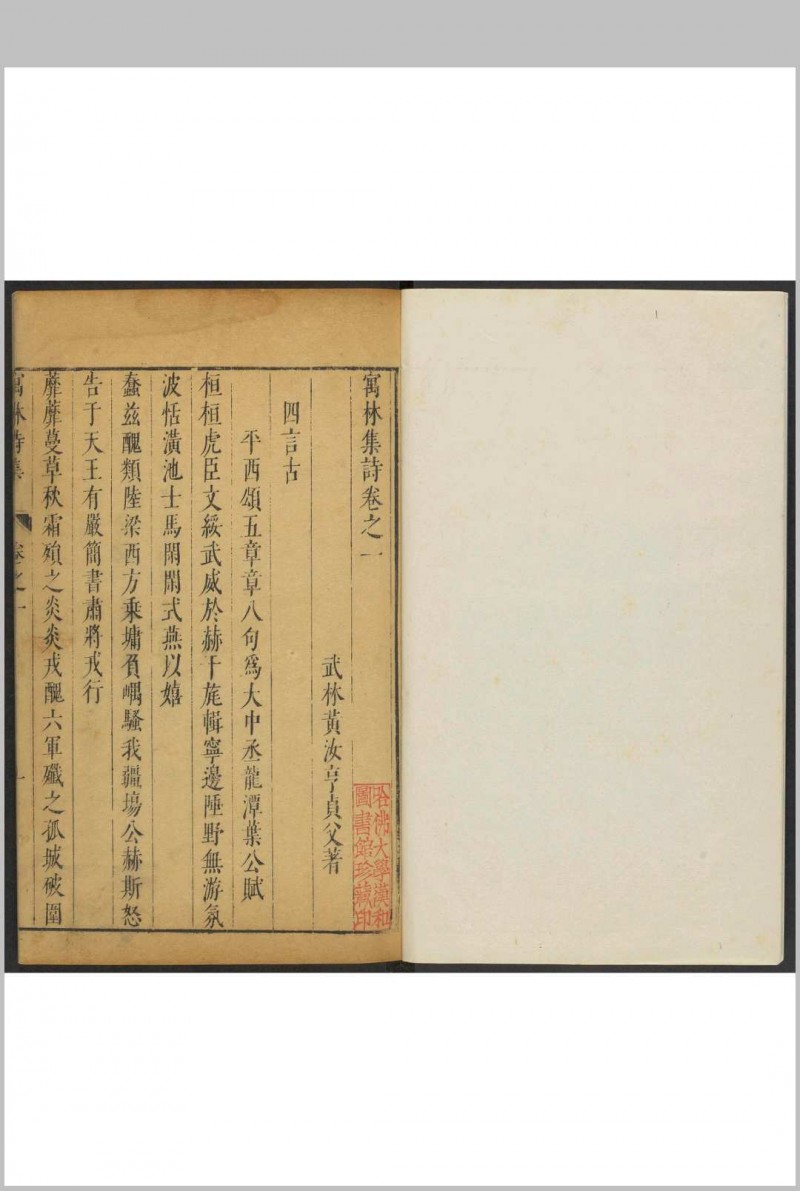 寓林集詩卷之一
武林黃汝亨貞父著
四言古
平西頌五章章八句爲大中丞龍潭葉公賦
桓桓虎臣文綏武威於赫干旄輯寧邊陲野無游氛
波恬潢池士馬閑閑式燕以嬉
蠢茲醜類陸梁西方乗墉負嵎騷我疆埸公赫斯怒
告于天王有嚴簡書肅將戎行
蘼蘼蔓草秋霜殞之炎炎戎醜六軍殲之孤城破圍
寓林詩集
卷之一
一
哈佛大學漢和
圖書館珍藏印